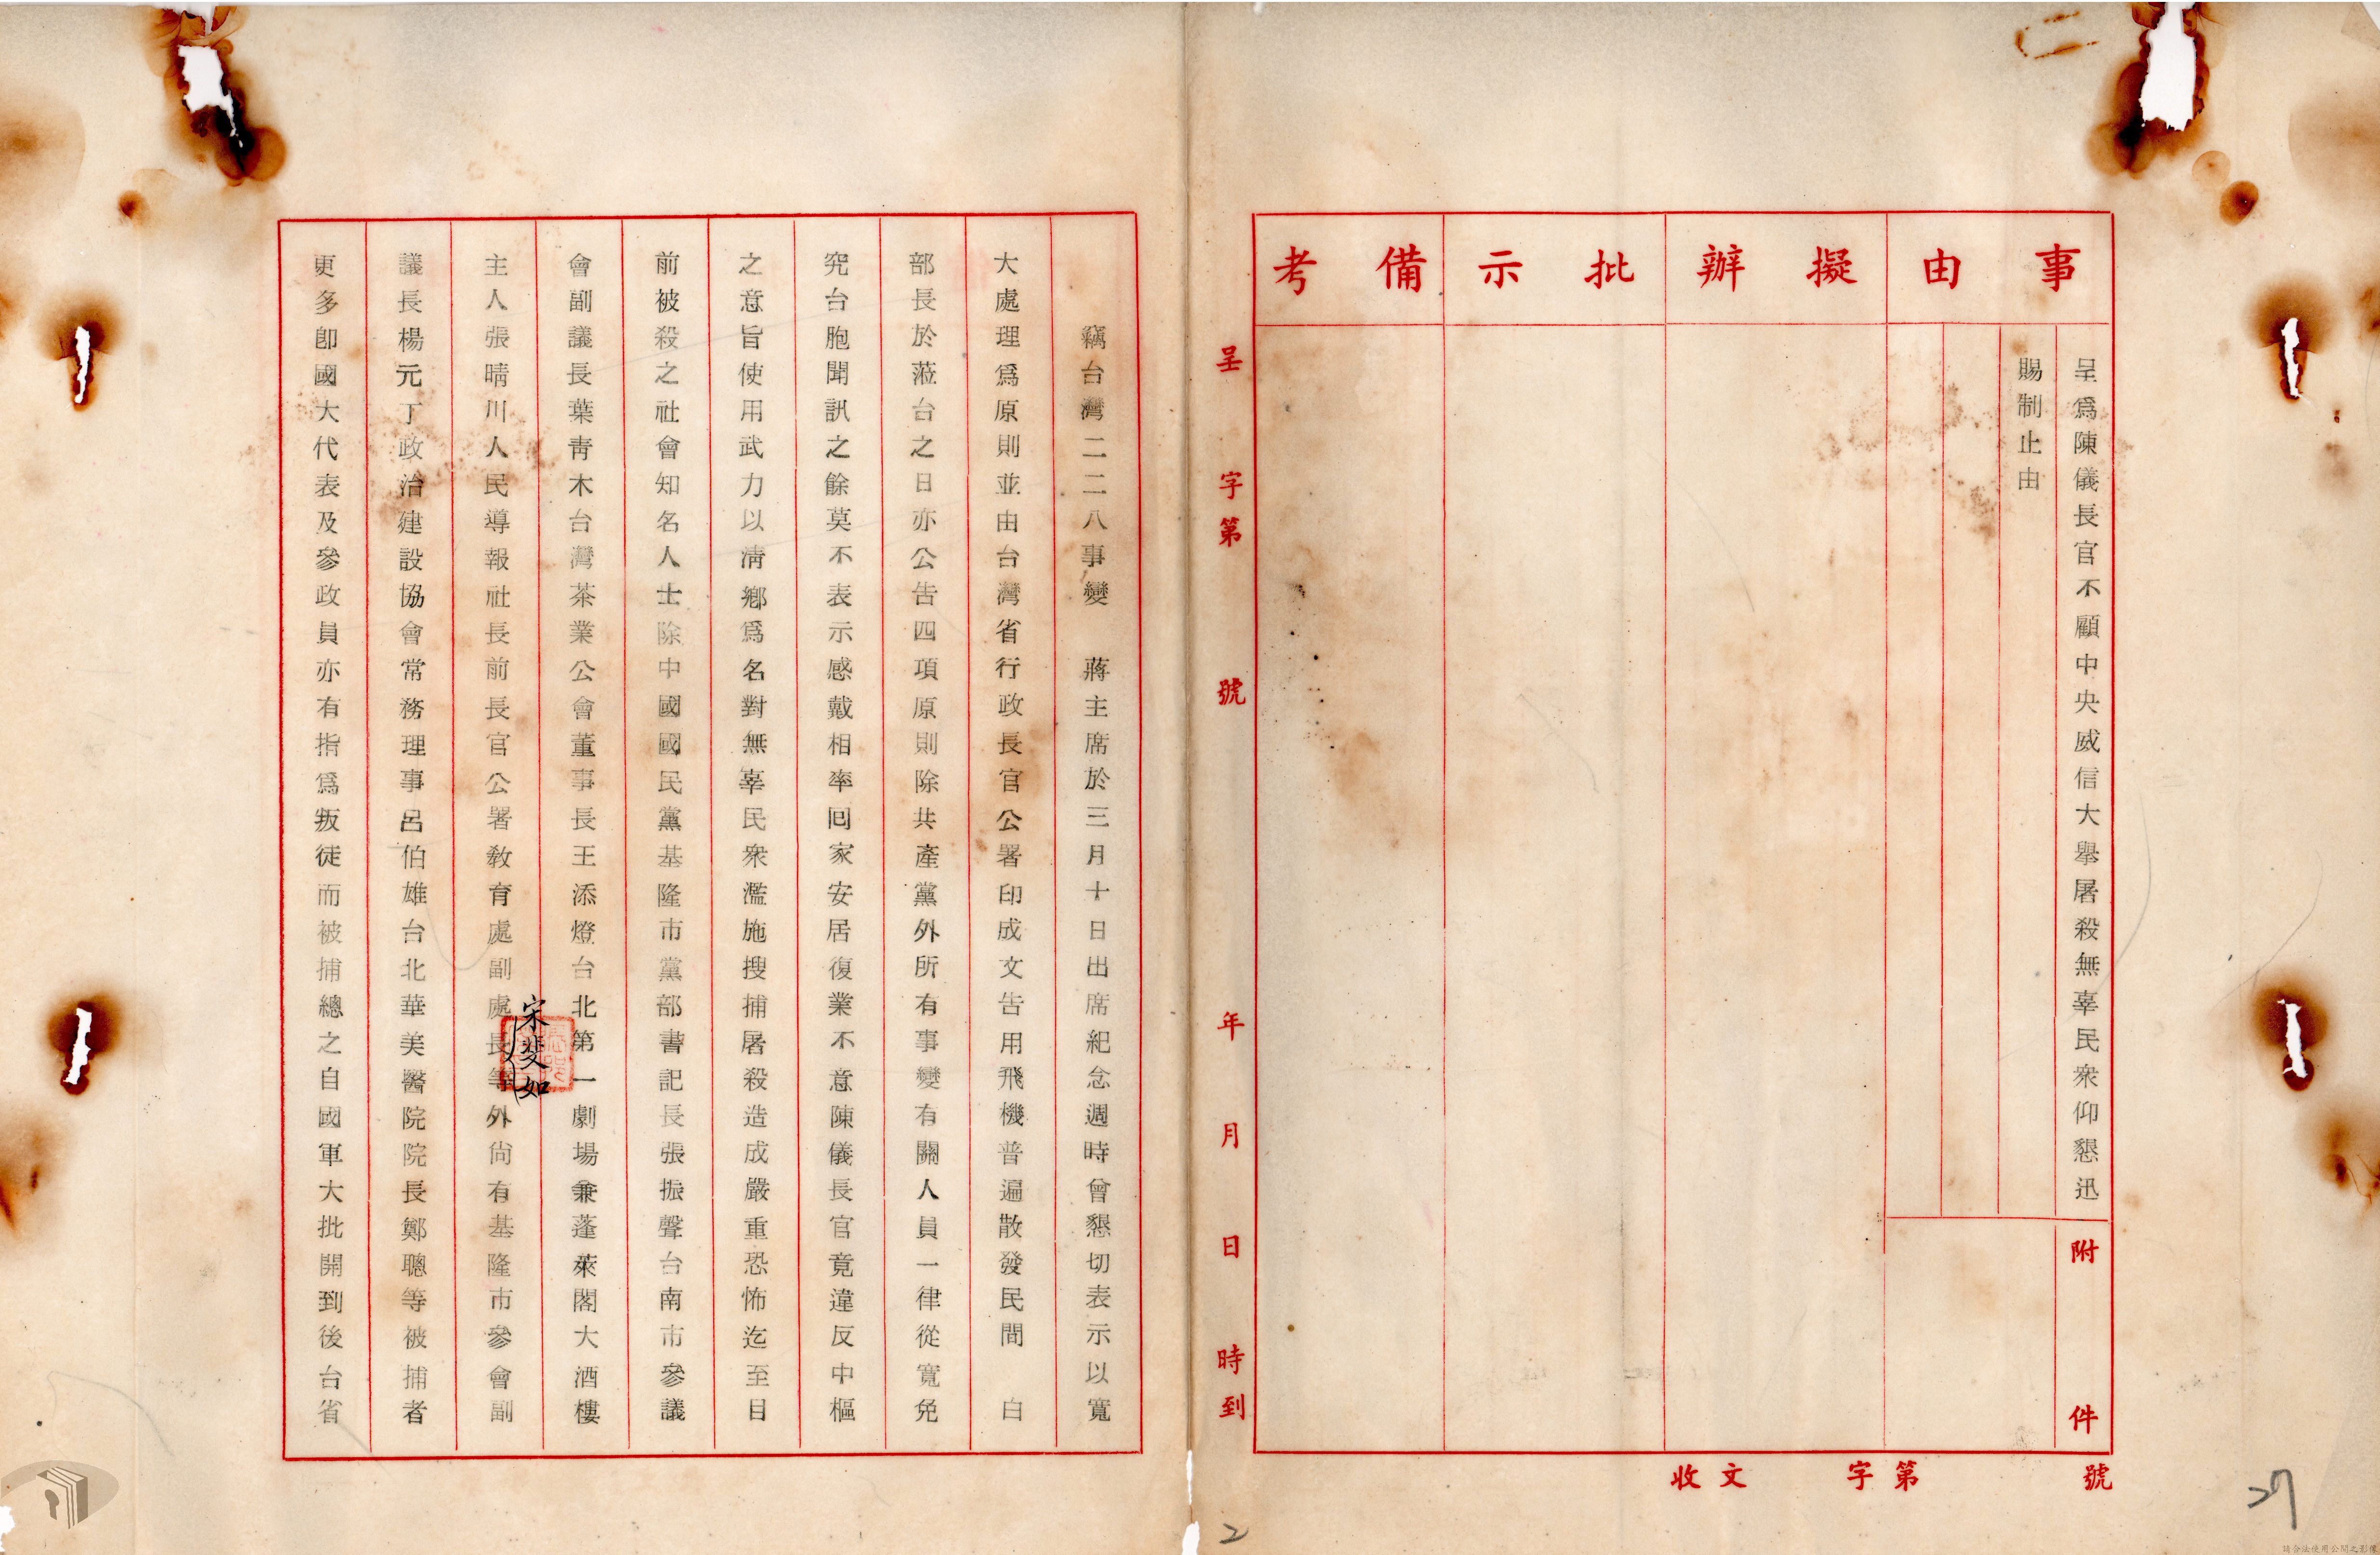 事由
擬辦
批示
備考
呈為陳儀長官不顧中央威信大舉屠殺無辜民衆仰懇迅
賜制止由
附件
收文 字第 號
呈 字第 號 年 月 日 時到
竊台灣二二八事變 蔣主席於三月十日出席紀念週時曾懇切表示以寬
大處理爲原則並由台灣省行政長官公署印成文告用飛機普遍散發民間 白
部長於蒞台之日亦公告四項原則除共產黨外所有事變有關人員一律從寬免
究台胞聞訊之餘莫不表示感戴相率回家安居復業不意陳儀長官竟違反中樞
之意旨使用武力以淸鄕爲名對無辜民衆濫施搜捕屠殺造成嚴重恐怖迄至目
前被殺之社會知名人士除中國國民黨基隆市黨部書記長張振聲台南市參議
會副議長葉靑木台灣茶業公會董事長王添燈台北第一劇場兼蓬萊閣大酒樓
主人張晴川人民導報社長前長官公署敎育處副處長宋斐如等外尙有基隆市參會副
議長楊元丁政治建設協會常務理事呂伯雄台北華美醫院院長鄭聰等被捕者
更多卽國大代表及參政員亦有指爲叛徒而被捕總之自國軍大批開到後台省
2
27
請合法使用公開之影像